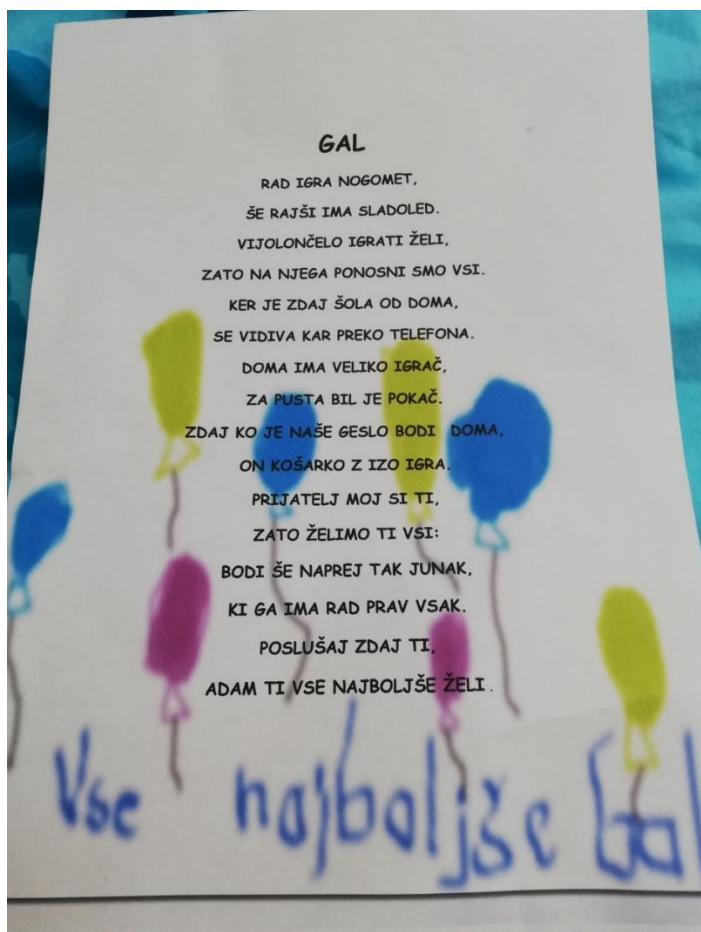 GAL
RAD IGRA NOGOMET,
ŠE RAJŠI IMA SLADOLED.
VIJOLONČELO IGRATI ŽELI,
ZATO NA NJEGA PONOSNI SMO VSI.
KER JE ZDAJ ŠOLA OD DOMA,
SE VIDIVA KAR PREKO TELEFONA.
DOMA IMA VELIKO IGRAČ,
ZA PUSTA BIL JE POKAČ.
ZDAJ KO JE NAŠE GESLO BODI DOMA,
ON KOŠARKO Z IZO IGRA.
PRIJATELJ MOJ SI TI,
ZATO ŽELIMO TI VSI:
BODI ŠE NAPREJ TAK JUNAK,
KI GA IMA RAD PRAV VSAK.
POSLUŠAJ ZDAJ TI,
ADAM TI VSE NAJBOLJŠE ŽELI.
Vse najboljše Gal